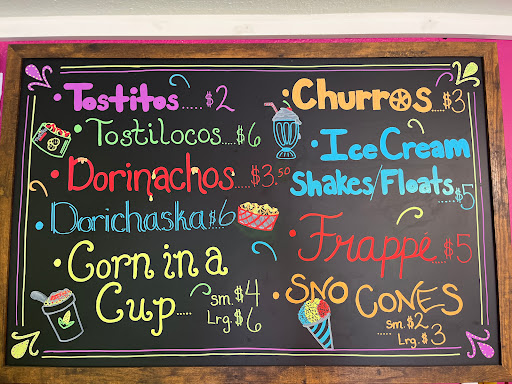 • Tostitos..... $2
• Tostilocos...$6
• Dorinachos....$3.50
• Dorichaska..$6
• Corn in a
Cup..... sm. $4
Lrg. $6
• Churros...$3
• Ice Cream
Shakes/Floats...$5
• Frappé...$5
• SNO CONES
sm. $2
Lrg. $3